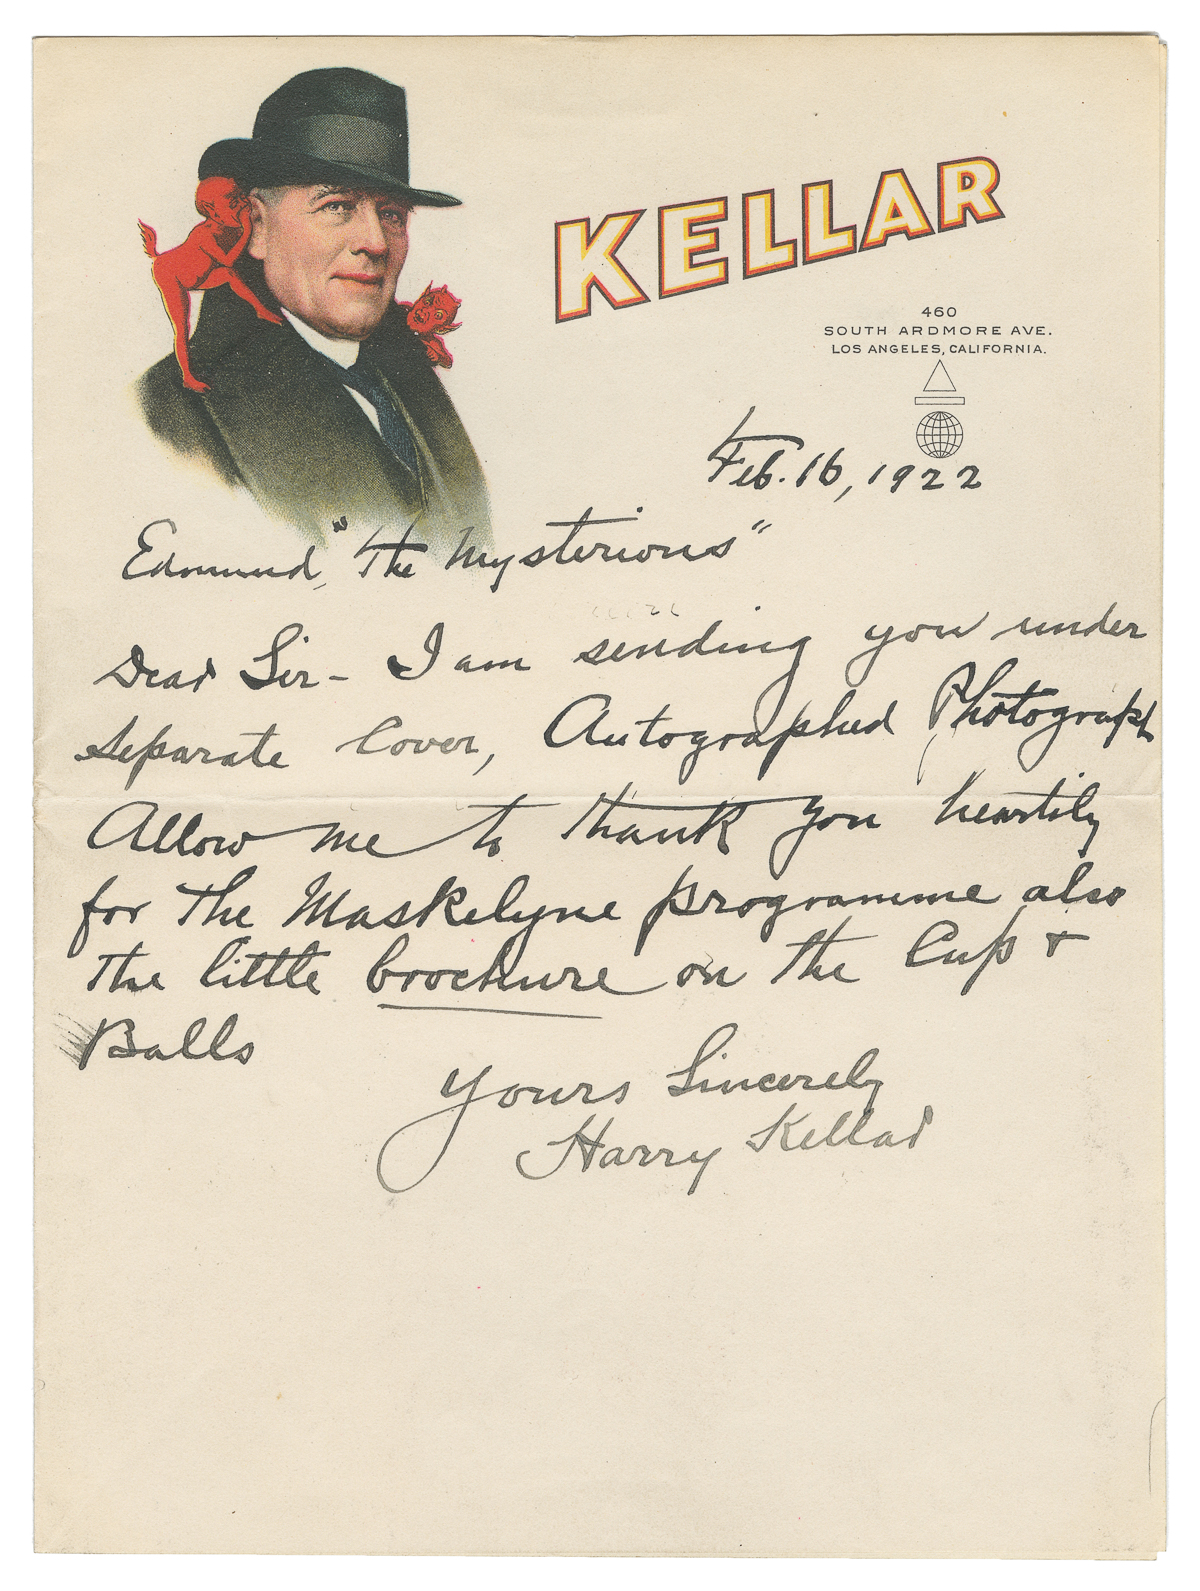 KELLAR
460
SOUTH ARDMORE AVE.
LOS ANGELES, CALIFORNIA.
Feb. 16, 1922
Edmund, "The Mysterious"
Dear Sir - I am sending you under
separate Cover, Autographed Photograph
Allow me to thank you heartily
for The Maskelyne programme also
The little brochure on the Cup &
Balls
Yours Sincerely
Harry Kellar